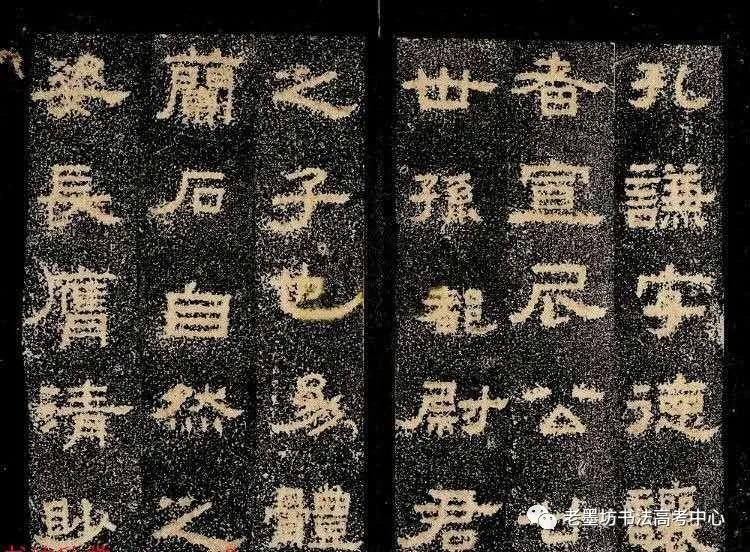 孔謙字德讓
者宣尼公廿
世孫都尉君
之子也幼體
蘭石自然之
姿長膺清眇
老墨坊书法高考中心